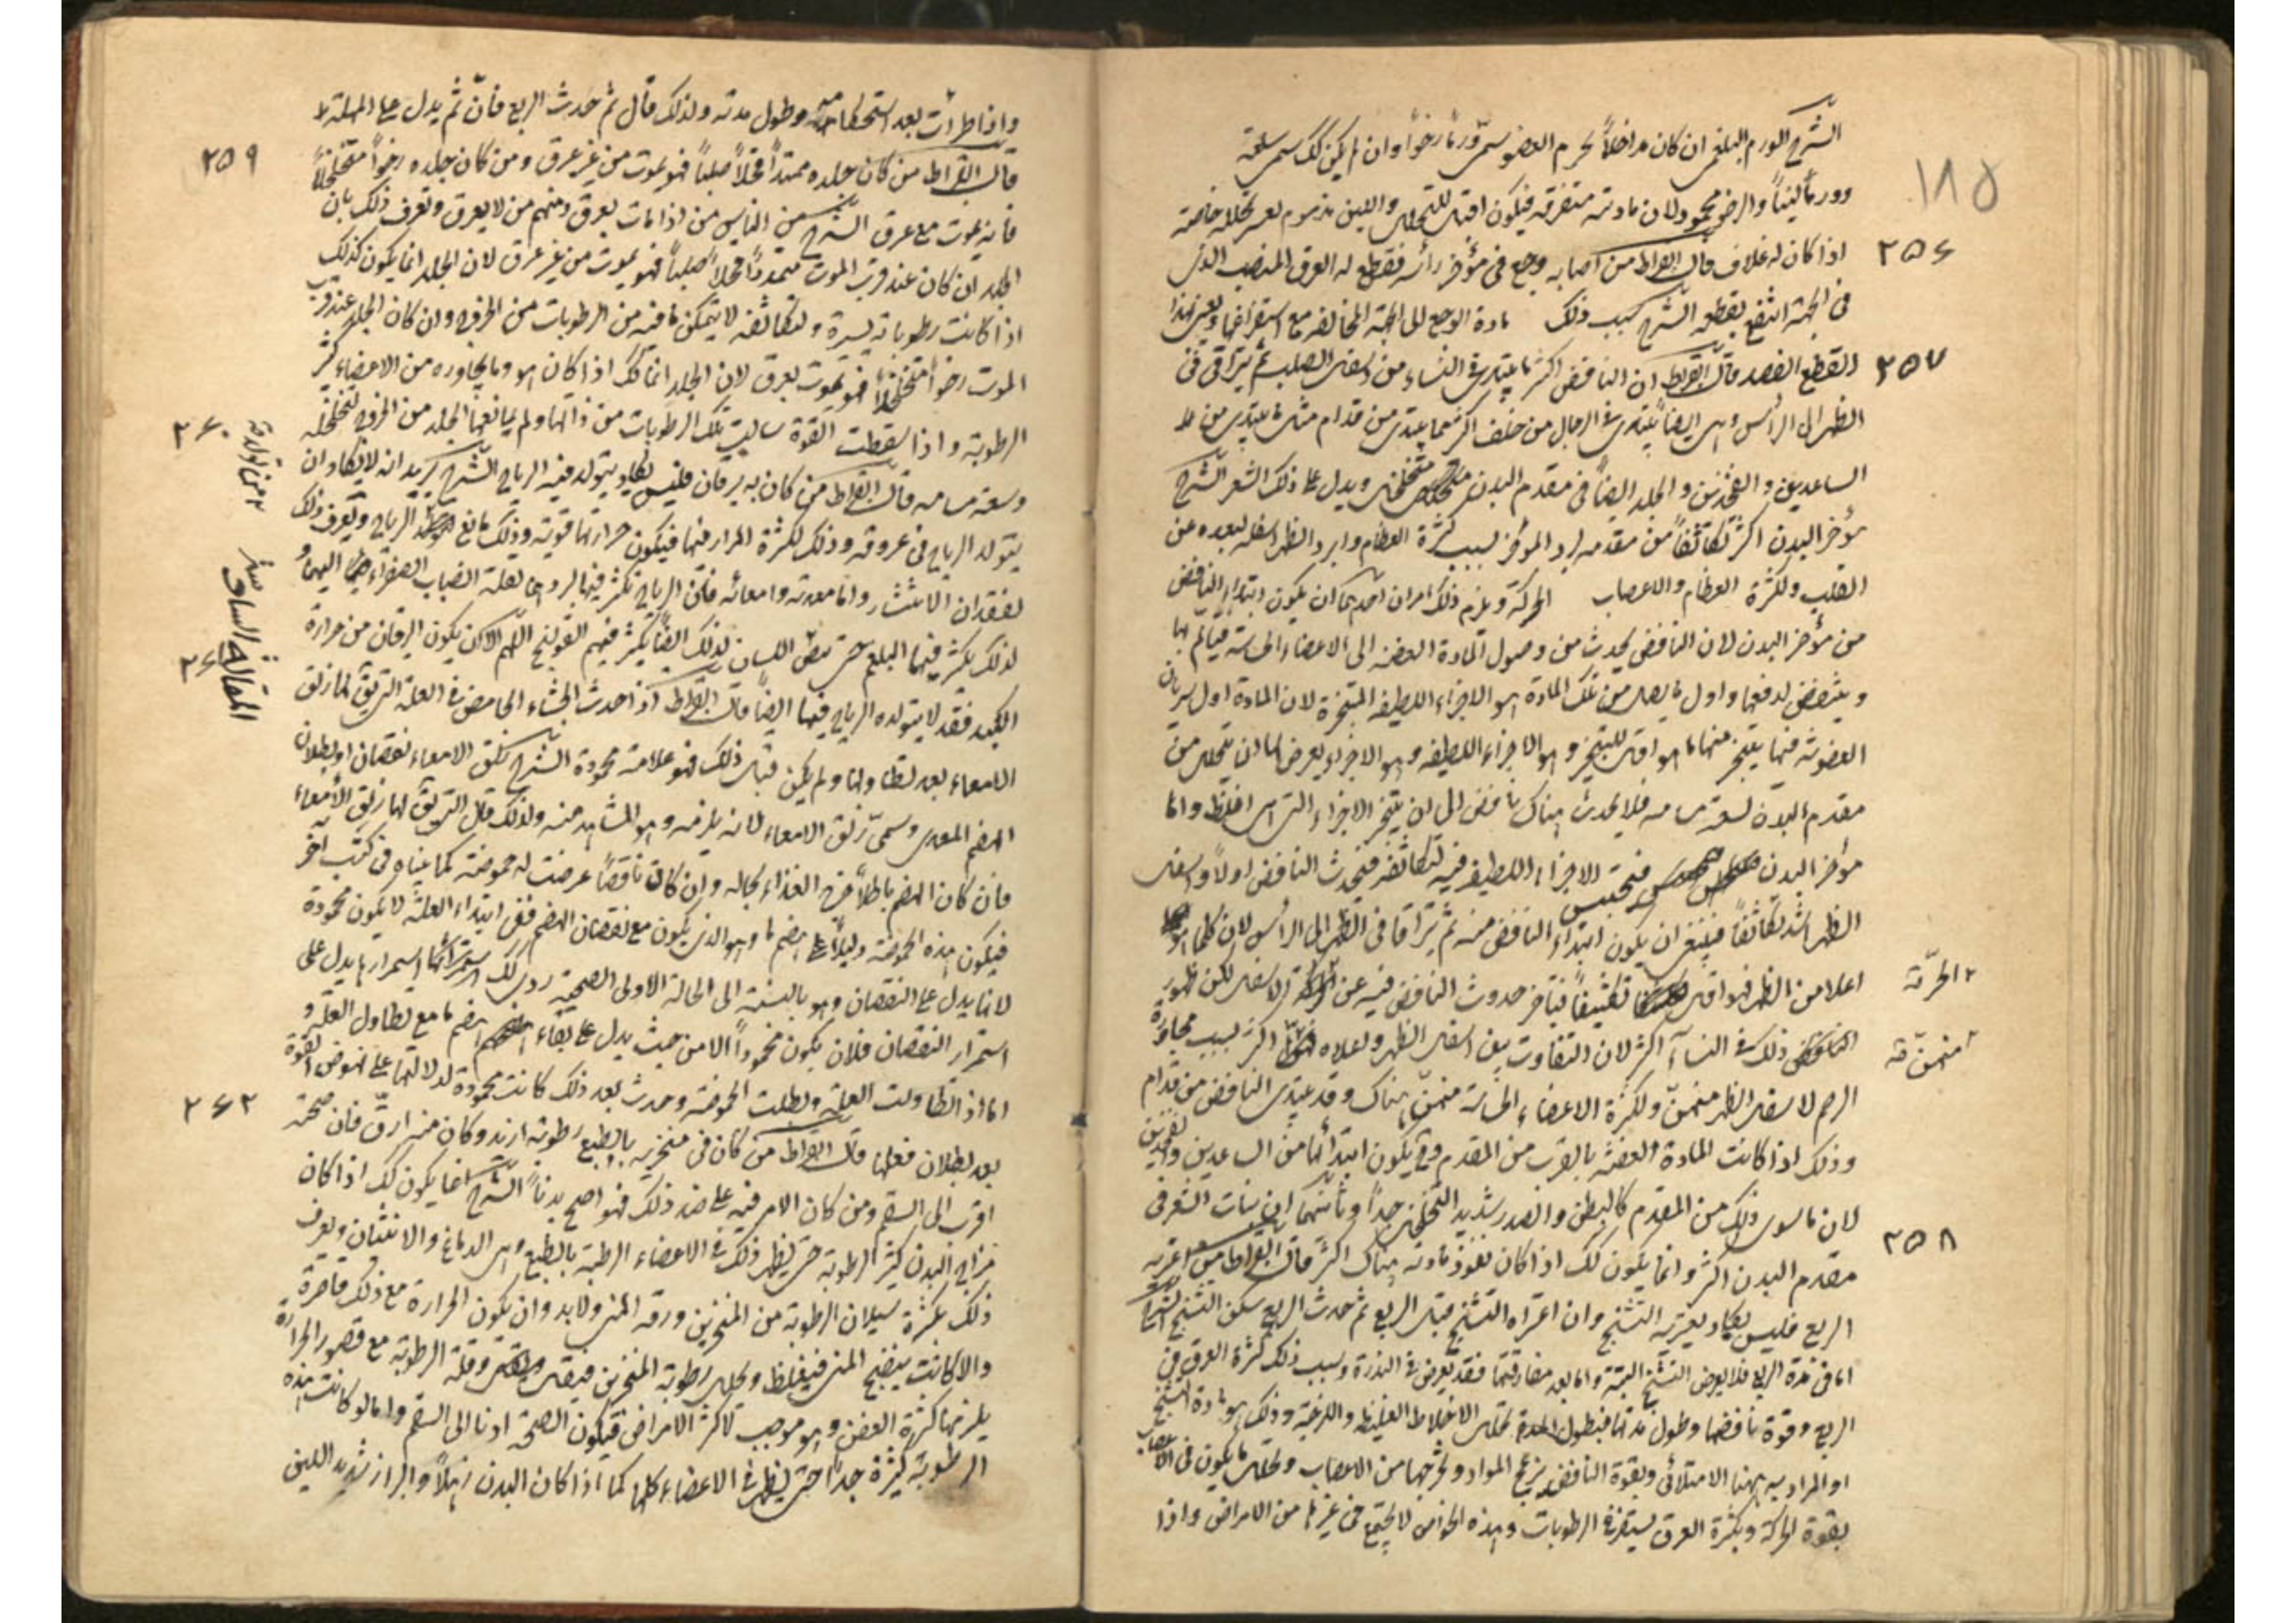 ١٨٥
الشرح الورم البلغمى ان كان مداخلاً لجرم العضو سمى ورماً رخواً وان لم يكن كك سمى سلعة
وورماً ليناً والرخو محمود لان مادته متفرقة فيكون اقبل للتحلل واللين مذموم لعسر تحلله خاصة
٢٥٦
اذا كان له غلاف قال ابقراط من اصابه وجع فى مؤخر رأسه فقطع له العرق المنتصب الذى
فى الجبهة انتفع بقطعه الشرح سبب ذلك مادة الوجع الى الجهة المخالفة مع استفراغها ويعنى بهذا
٢٥٧
القطع الفصد قال ابقراط ان النافض اكثر ما يبتدى فى النساء من اسفل الصلب ثم يتراقى فى
الظهر الى الرأس وهى ايضاً يبتدى فى الرجال من خلف اكثر مما يبتدى من قدام مثل ما يبتدى من
الساعدين والفخذين والجلد ايضاً فى مقدم البدن متخلخل ويدل على ذلك الشعر الشرح
مؤخر البدن اكثر تكاثفاً من مقدمه وابرد المؤخر بسبب كثرة العظام وابرد الظهر اسفله لبعده عن
القلب ولكثرة العظام والاعصاب الحركة ويلزم ذلك امران احدهما ان يكون ابتداء النافض
من مؤخر البدن لان النافض يحدث من وصول المادة العفنة الى الاعضاء الحساسة فيتألم بها
وينتفض لدفعها واول ما يصل من تلك المادة هو الاجزاء اللطيفة المتبخرة لان المادة اول سريان
العفونة فيها يتبخر منها ما هو اقبل للتبخر وهو الاجزاء اللطيفة وهو الاجزاء يعرض لها ان يتحلل من
مقدم البدن لسعة مسامه فلا يحدث هناك نافض الى ان يتبخر الاجزاء التى هى اغلظ واما
مؤخر البدن فتحتبس الاجزاء اللطيفة فيه لتكاثفه فيحدث النافض اولاً واسفل
الظهر اشد تكاثفاً فينبغى ان يكون ابتداء النافض منه ثم يتراقا فى الظهر الى الرأس لان كلما هو
اعلا من الظهر فهو اقل تكثيفاً فيتأخر حدوث النافض فيه عن الاسفل لكن ظهور
٢ الحرّقة
النافض ذلك فى النساء اكثر لان التفاوت بين اسفل الظهر واعلاه اكثر بسبب مجاورة
الرحم لاسفل الظهر منهن ولكثرة الاعضاء الحساسة منهن هناك وقد يبتدى النافض من قدام
وذلك اذا كانت المادة العفنة بالقرب من المقدم وح يكون ابتدائها من الساعدين والفخذين
لان ما سوى ذلك من المقدم كالبطن والصدر شديد التخلخل جداً وثانيهما ان نبات الشعر فى
٢٥٨
مقدم البدن اكثر وانما يكون كك اذا كان نفوذ مادته هناك اكثر قال ابقراط من اعترته
الربع فليس يكاد يعتريه التشنج وان اعتراه التشنج قبل الربع ثم حدث الربع سكن التشنج الشرح
اما فى مدة الربع فلا يعرض التشنج البتة واما بعد مفارقتها فقد يعرض فى الندرة وسبب ذلك كثرة العرق فى
الربع وقوة نافضها وطول مدتها فبطول المدة تحلل الاخلاط الغليظة واللزجة وذلك هو مادة التشنج
او المراد به ههنا الامتلائى وبقوة النافض يزعج المواد ويخرجها من الاعصاب وتحلل ما يكون فى الاعصاب
بقوة الحركة وبكثرة العرق يستفرغ الرطوبات وهذه الخواص لا يجتمع فى غيرها من الامراض واذا
واذا طرأت بعد استحكامه وطول مدته ولذلك قال ثم حدث الربع فان ثم يدل على المهلة
٢٥٩
قال ابقراط من كان جلده ممتداً قحلاً صلباً فهو يموت من غير عرق ومن كان جلده رخواً متخلخلاً
فانه يموت مع عرق الشرح من الناس من اذا مات يعرق ومنهم من لا يعرق وتعرف ذلك بان
الجلد ان كان عند قرب الموت متمدداً قحلاً صلباً فهو يموت من غير عرق لان الجلد انما يكون كذلك
اذا كانت رطوباته يسيرة ولتكاثفه لا يتمكن ما فيه من الرطوبات من الخروج وان كان الجلد عند قرب
الموت رخواً متخلخلاً فهو يموت بعرق لان الجلد انما كك اذا كان هو وما يجاوره من الاعضاء كثير
الرطوبة واذا سقطت القوة سالت تلك الرطوبات من ذاتها ولم يمانعها الجلد من الخروج لتخلخله
٢٦٠
وسعة مسامه قال ابقراط من كان به يرقان فليس يكاد يتولد فيه الرياح الشرح يريد انه لا يكاد ان
يتولد الرياح فى عروقه وذلك لكثرة المرار فيها فيكون حرارتها قوية وذلك مانع الرياح ويعرف ذلك
لفقدان الانتشار واما معدته وامعائه فان الرياح تكثر فيها لبردهما لقلة انصباب الصفراء اليهما و
لذلك يكثر فيها البلغم حتى تبيض اللسان لذلك ايضاً يكثر فيهم القولنج اللهم الا ان يكون اليرقان من حرارة
المقالة السادسة
٢٦١
الكبد فقد لا يتولد الرياح فيها ايضاً قال ابقراط اذا حدث الجشاء الحامض فى العلة التى يق لها زلق
الامعاء بعد تطاولها ولم يكن قبل ذلك فهو علامة محمودة الشرح زلق الامعاء نقصان او بطلان
الهضم المعدى وسمى زلق الامعاء لانه يلزمه وهو المشاهد منه ولذلك قال التى يق لها زلق الأمعاء
فان كان الهضم باطلاً خرج الغذاء بحاله وان كان ناقصاً عرضت له حموضة كما بيناه فى كتب اخر
فيكون هذه الحموضة دليلاً على هضم ما وهو الذى يكون مع نقصان الهضم ففى ابتداء العلة لا يكون محمودة
لانها يدل على النقصان وهو بالنسبة الى الحالة الاولى الصحية ردى كك استمرارها يدل على
استمرار النقصان فلان يكون محموداً الا من حيث يدل على بقاء هضم ما مع تطاول العلة و
اما اذا تطاولت العلة وبطلت الحموضة وحدث بعد ذلك كانت محمودة لدلالتها على نهوض القوة
٢٦٢
بعد بطلان فعلها قال ابقراط من كان فى منخريه بالطبع رطوبة ازيد وكان منيه ارق فان صحته
اقرب الى السقم ومن كان الامر فيه على ضد ذلك فهو اصح بدناً الشرح انما يكون كك اذا كان
مزاج البدن كثير الرطوبة حتى يظهر ذلك فى الاعضاء الرطبة بالطبع وهى الدماغ والانثيان ويعرف
ذلك بكثرة سيلان الرطوبة من المنخرين ورقة المنى ولابد وان يكون الحرارة مع ذلك قاصرة
والا كانت ينضج المنى فيغلظ وتحلل رطوبة المنخرين فيقل وقلة الرطوبة مع قصور الحرارة
يلزمها كثرة العفن وهو موجب لاكثر الامراض فيكون الصحة ادنا الى السقم واما لو كانت هذه
الرطوبة كثيرة جداً حتى يظهر فى الاعضاء كلها كما اذا كان البدن رهلاً والبراز شديد اللين